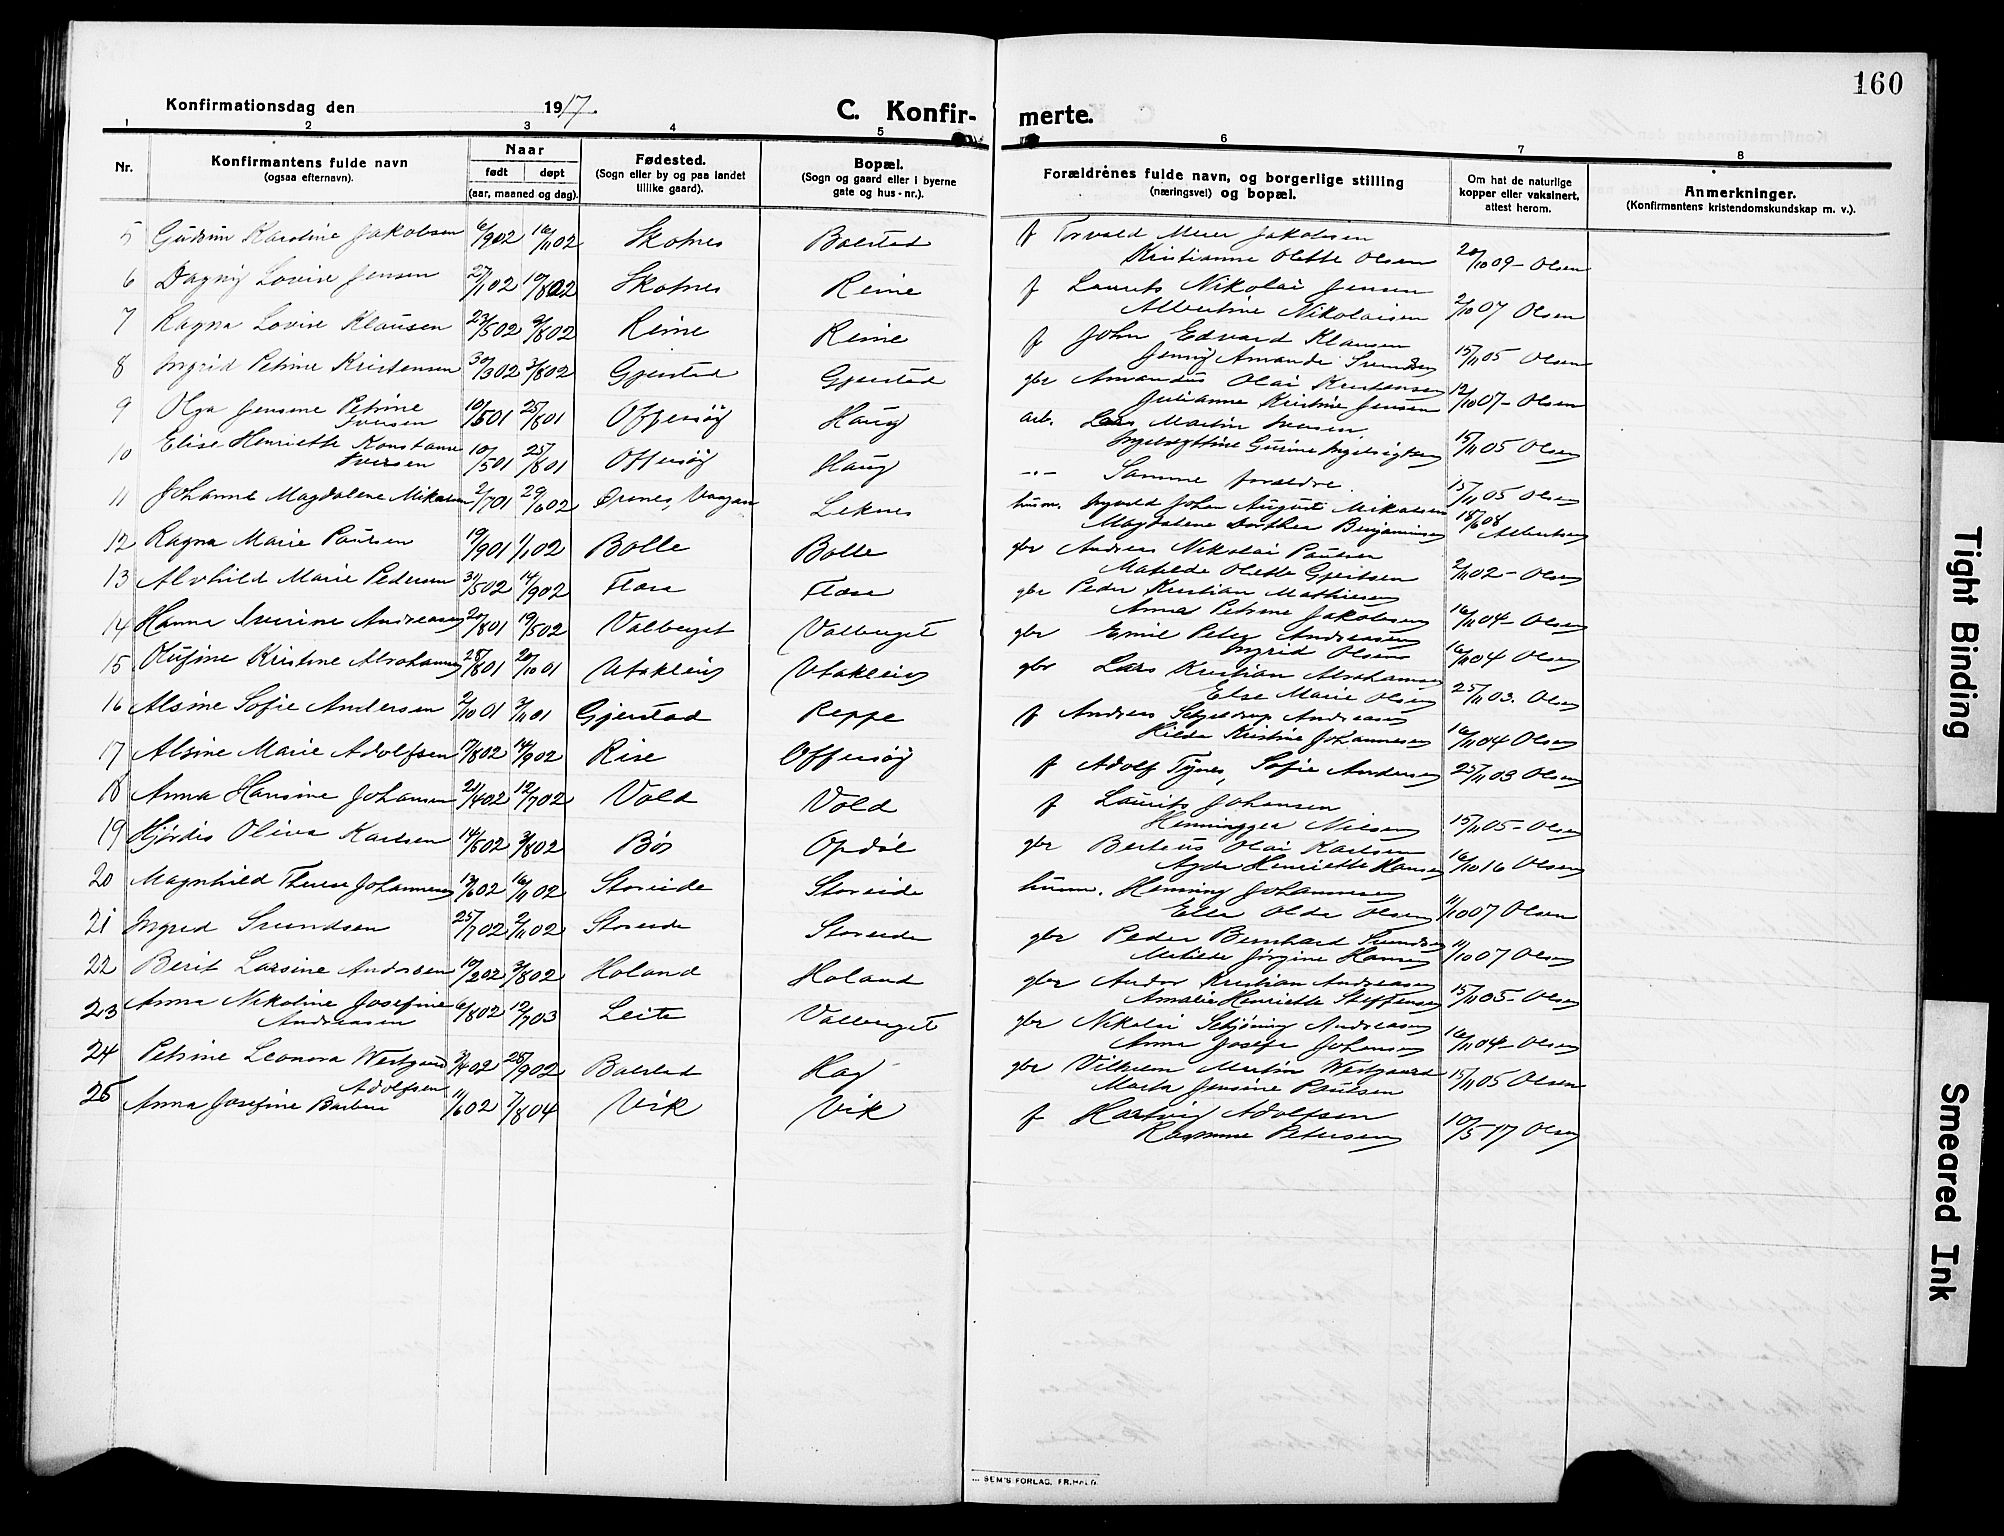 160
Konfirmationsdag den 1917.
C. Konfir- merte.
1 2 3 4 5 6 7 8
Nr.
Konfirmantens fulde navn
(ogsaa efternavn).
Naar
født døpt
(aar, maaned og dag).
Fødested.
(Sogn eller by og paa landet
tillike gaard).
Bopæl.
(Sogn og gaard eller i byerne
gate og hus-nr.).
Forældrenes fulde navn, og borgerlige stilling
(næringsvei) og bopæl.
Om hat de naturlige
kopper eller vaksinert,
attest herom.
Anmerkninger.
(Konfirmantens kristendomskundskap m. v.).
5 Gudrun Karoline Jakobsen 6/9 02 16/11 02 Skotnes Bolstad f Torvald Meier Jakobsen
Kristianne Olette Olsen 20/10 09 - Olsen
6 Dagny Lovise Jensen 27/1 02 10/8 02 Skotnes Reine f Laurits Nikolai Jensen
Albertine Nikolaisen 2/10 07 Olsen
7 Ragna Lovise Klausen 23/5 02 9/8 02 Reine Reine f John Edvard Klausen
Jenny Amanda Svendsen 15/11 05 - Olsen
8 Ingrid Petrine Kristensen 30/3 02 3/8 02 Gjerstad Gjerstad gbr Amandus Olai Kristensen
Julianne Kristine Jensen 12/10 07 - Olsen
9 Olga Jensine Petrine
Iversen 10/5 01 25/8 01 Offersøy Haug arb. Lars Martin Iversen
15/11 05 Olsen
10 Elise Henriette Konstanse
Iversen 10/5 01 25/8 01 Offersøy Haug -"- Samme forældre. 15/11 05 Olsen
11 Johanne Magdalene Mikalsen 2/7 01 29/6 02 Ørsnes, Vaagan Leknes husm. Ingvald Johan August Mikalsen
Magdalene Dorthea Benjaminsen 18/6 08 Albertsen
12 Ragna Marie Paulsen 19/9 01 1/1 02 Bolle Bolle gbr Andreas Nikolai Paulsen
Matilde Olette Gjertsen 2/11 02 - Olsen
13 Alvhild Marie Pedersen 31/5 02 14/9 02 Flase Flase gbr Peder Kristian Mathisen
Anna Petrine Jakobsen 16/11 04 - Olsen
14 Hanna Iverine Andreasen 20/8 01 19/5 02 Valberget Valberget gbr Emil Peter Andreasen
Ingrid Olsen 16/11 04 Olsen
15 Olufine Kristine Abrahamsen 28/8 01 20/10 01 Utakleiv Utakleiv gbr Lars Kristian Abrahamsen
Else Marie Olsen 25/11 03. Olsen
16 Alsine Sofie Andersen 2/10 01 3/11 01 Gjerstad Reppe f Andreas Schjeldrup Andreasen
Hilda Kristine Johannesen 16/11 04 Olsen
17 Alsine Marie Adolfsen 17/8 02 14/9 02 Rise Offersøy f Adolf Tynes, Sofie Andersen 25/11 03 Olsen
18 Anna Hansine Johansen 21/4 02 12/7 02 Vold Vold f Laurits Johansen
Henninggea Nilsen 15/11 05 - Olsen
19 Hjørdis Oliva Karlsen 14/5 02 3/8 02 Bø Opdøl gbr Berteus Olai Karlsen
Agda Henriette Hansen 16/10 16 Olsen
20 Magnhild Therese Johannesen 13/6 02 16/11 02 Storeide Storeide husm. Henning Johannesen
Ella Olda Olsen 11/10 07 Olsen
21 Ingrid Svendsen 25/7 02 2/11 02 Storeide Storeide gbr Peder Bernhard Svendsen
Matilde Jørgine Hansen 11/10 07 Olsen
22 Berit Larsine Andersen 10/2 02 3/8 02 Holand Holand gbr Andor Kristian Andreasen
Amalie Henriette Steffensen 15/11 05 - Olsen
23 Anna Nikoline Josefine
Andreasen 6/8 02 12/7 03 Leite Valberget gbr Nikolai Schjøning Andreasen
Anna Josefa Johansen 16/11 04 - Olsen
24 Petrine Leonora Westgaard 3/4 02 28/9 02 Bolstad Hag gbr Vilhelm Martin Westgaard
Marta Jensine Paulsen 15/11 05 Olsen
25 Anna Josefine Barbara Adolfsen 11/6 02 7/8 04 Vik Vik f Hartvig Adolfsen
Rasmine Petersen 10/5 17 Olsen
SEM'S FORLAG, FR.HALD.
Tight Binding
Smeared Ink